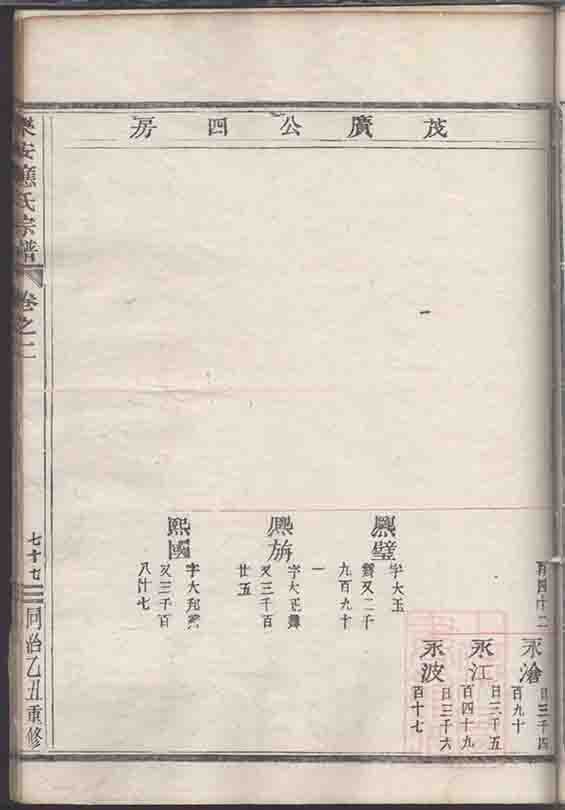 茂廣公四房
百四十二
永滄
日三千四
百九十
永江
日三千五
百四十九
永波
日三千六
百十七
熙璧
字大玉
賢又二千
九百九十
一
熙旃
字大正賢
又三千百
廿五
熙國
字大邦賢
又三千百
八十七
樂安應氏宗譜
卷之二
七十七
同治乙丑重修